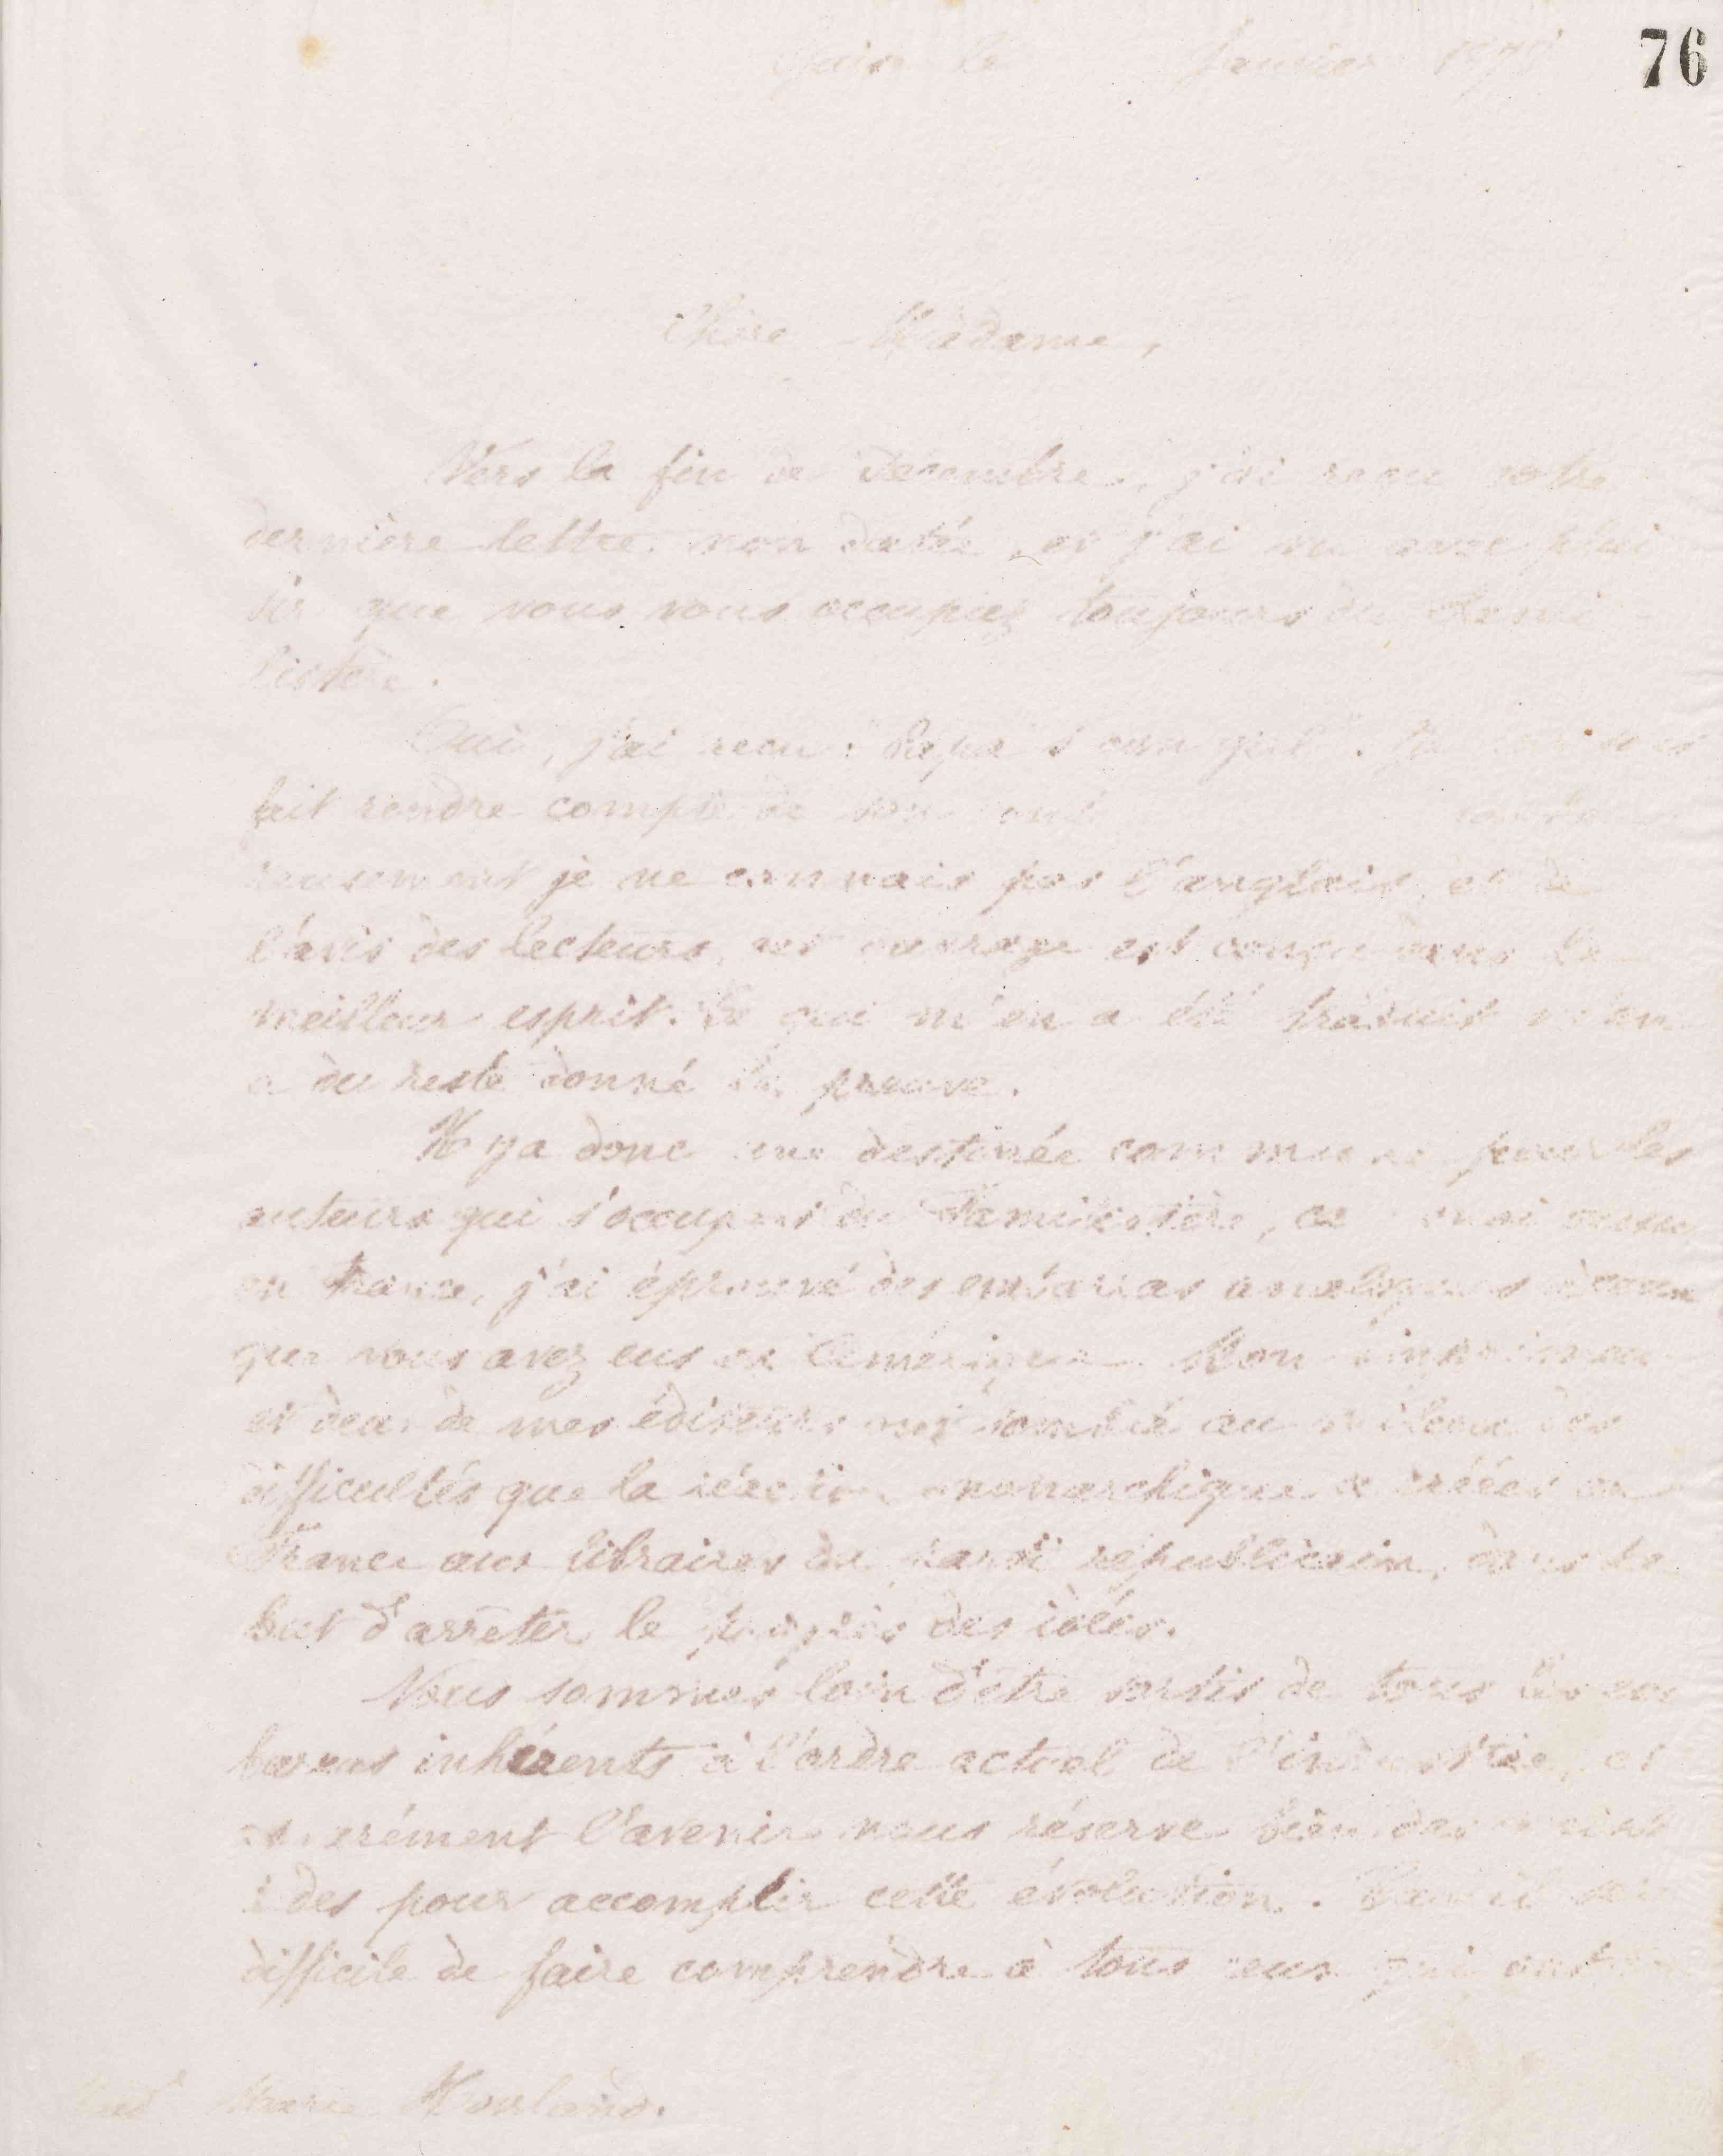 76
Guise le Janvier
Chère Madame,
Vers la fin de décembre, j'ai reçu votre
dernière lettre non datée, et j'ai vu avec plai
sir que vous vous occupez toujours du Fami
listère.
Oui, j'ai reçu: Papa's own girl.
fait rendre compte de son
reusement je ne connais pas l'anglais, et de
l'avis des lecteurs, cet ouvrage est conçu dans le
meilleur esprit. Ce qui m'en a été traduit m'en
a du reste donné la preuve.
Il y a donc une destinée commune pour les
auteurs qui s'occupent du Familistère, car moi aussi
en France, j'ai éprouvé des embarras analogues à ceux
que vous avez eus en Amérique. Mon imprimeur
et deux de mes éditeurs ont tombé au milieu des
difficultés que la réaction monarchique a créées en
France aux libraires du parti républicain, dans le
but d'arrêter le progrès des idées.
Nous sommes loin d'être sortis de tous les em
barras inhérents à l'ordre actuel de l'industrie, et
assurément l'avenir nous réserve bien des
des pour accomplir cette évolution.
difficile de faire comprendre à tous ceux qui ont
Mad<sup>e</sup> Marie Howland.